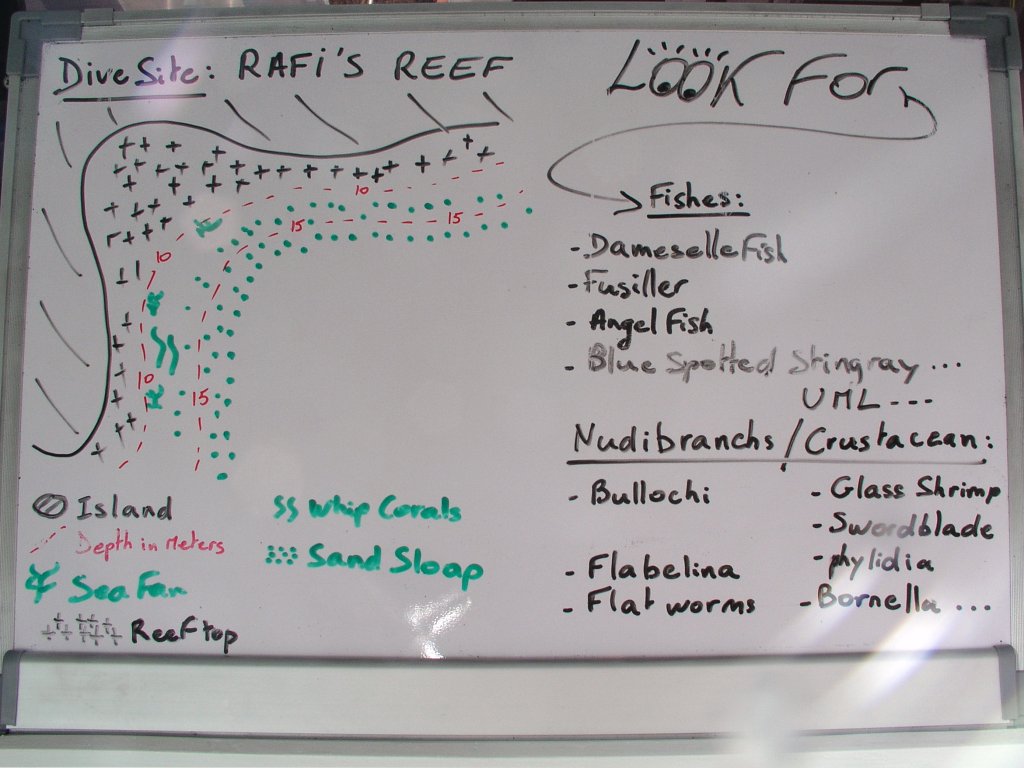 Dive Site: RAFI'S REEF
10
15
15
10
10
15
Island
Depth in Meters
Sea Fan
Reef top
Whip Corals
Sand Sloap
LOOK FOR
Fishes:
- Dameselle Fish
- Fusiller
- Angel Fish
- Blue Spotted Stingray ...
UML ---
Nudibranchs / Crustacean:
- Bullochi
- Flabelina
- Flat worms
- Glass Shrimp
- Swordblade
- phylidia
- Bornella ...